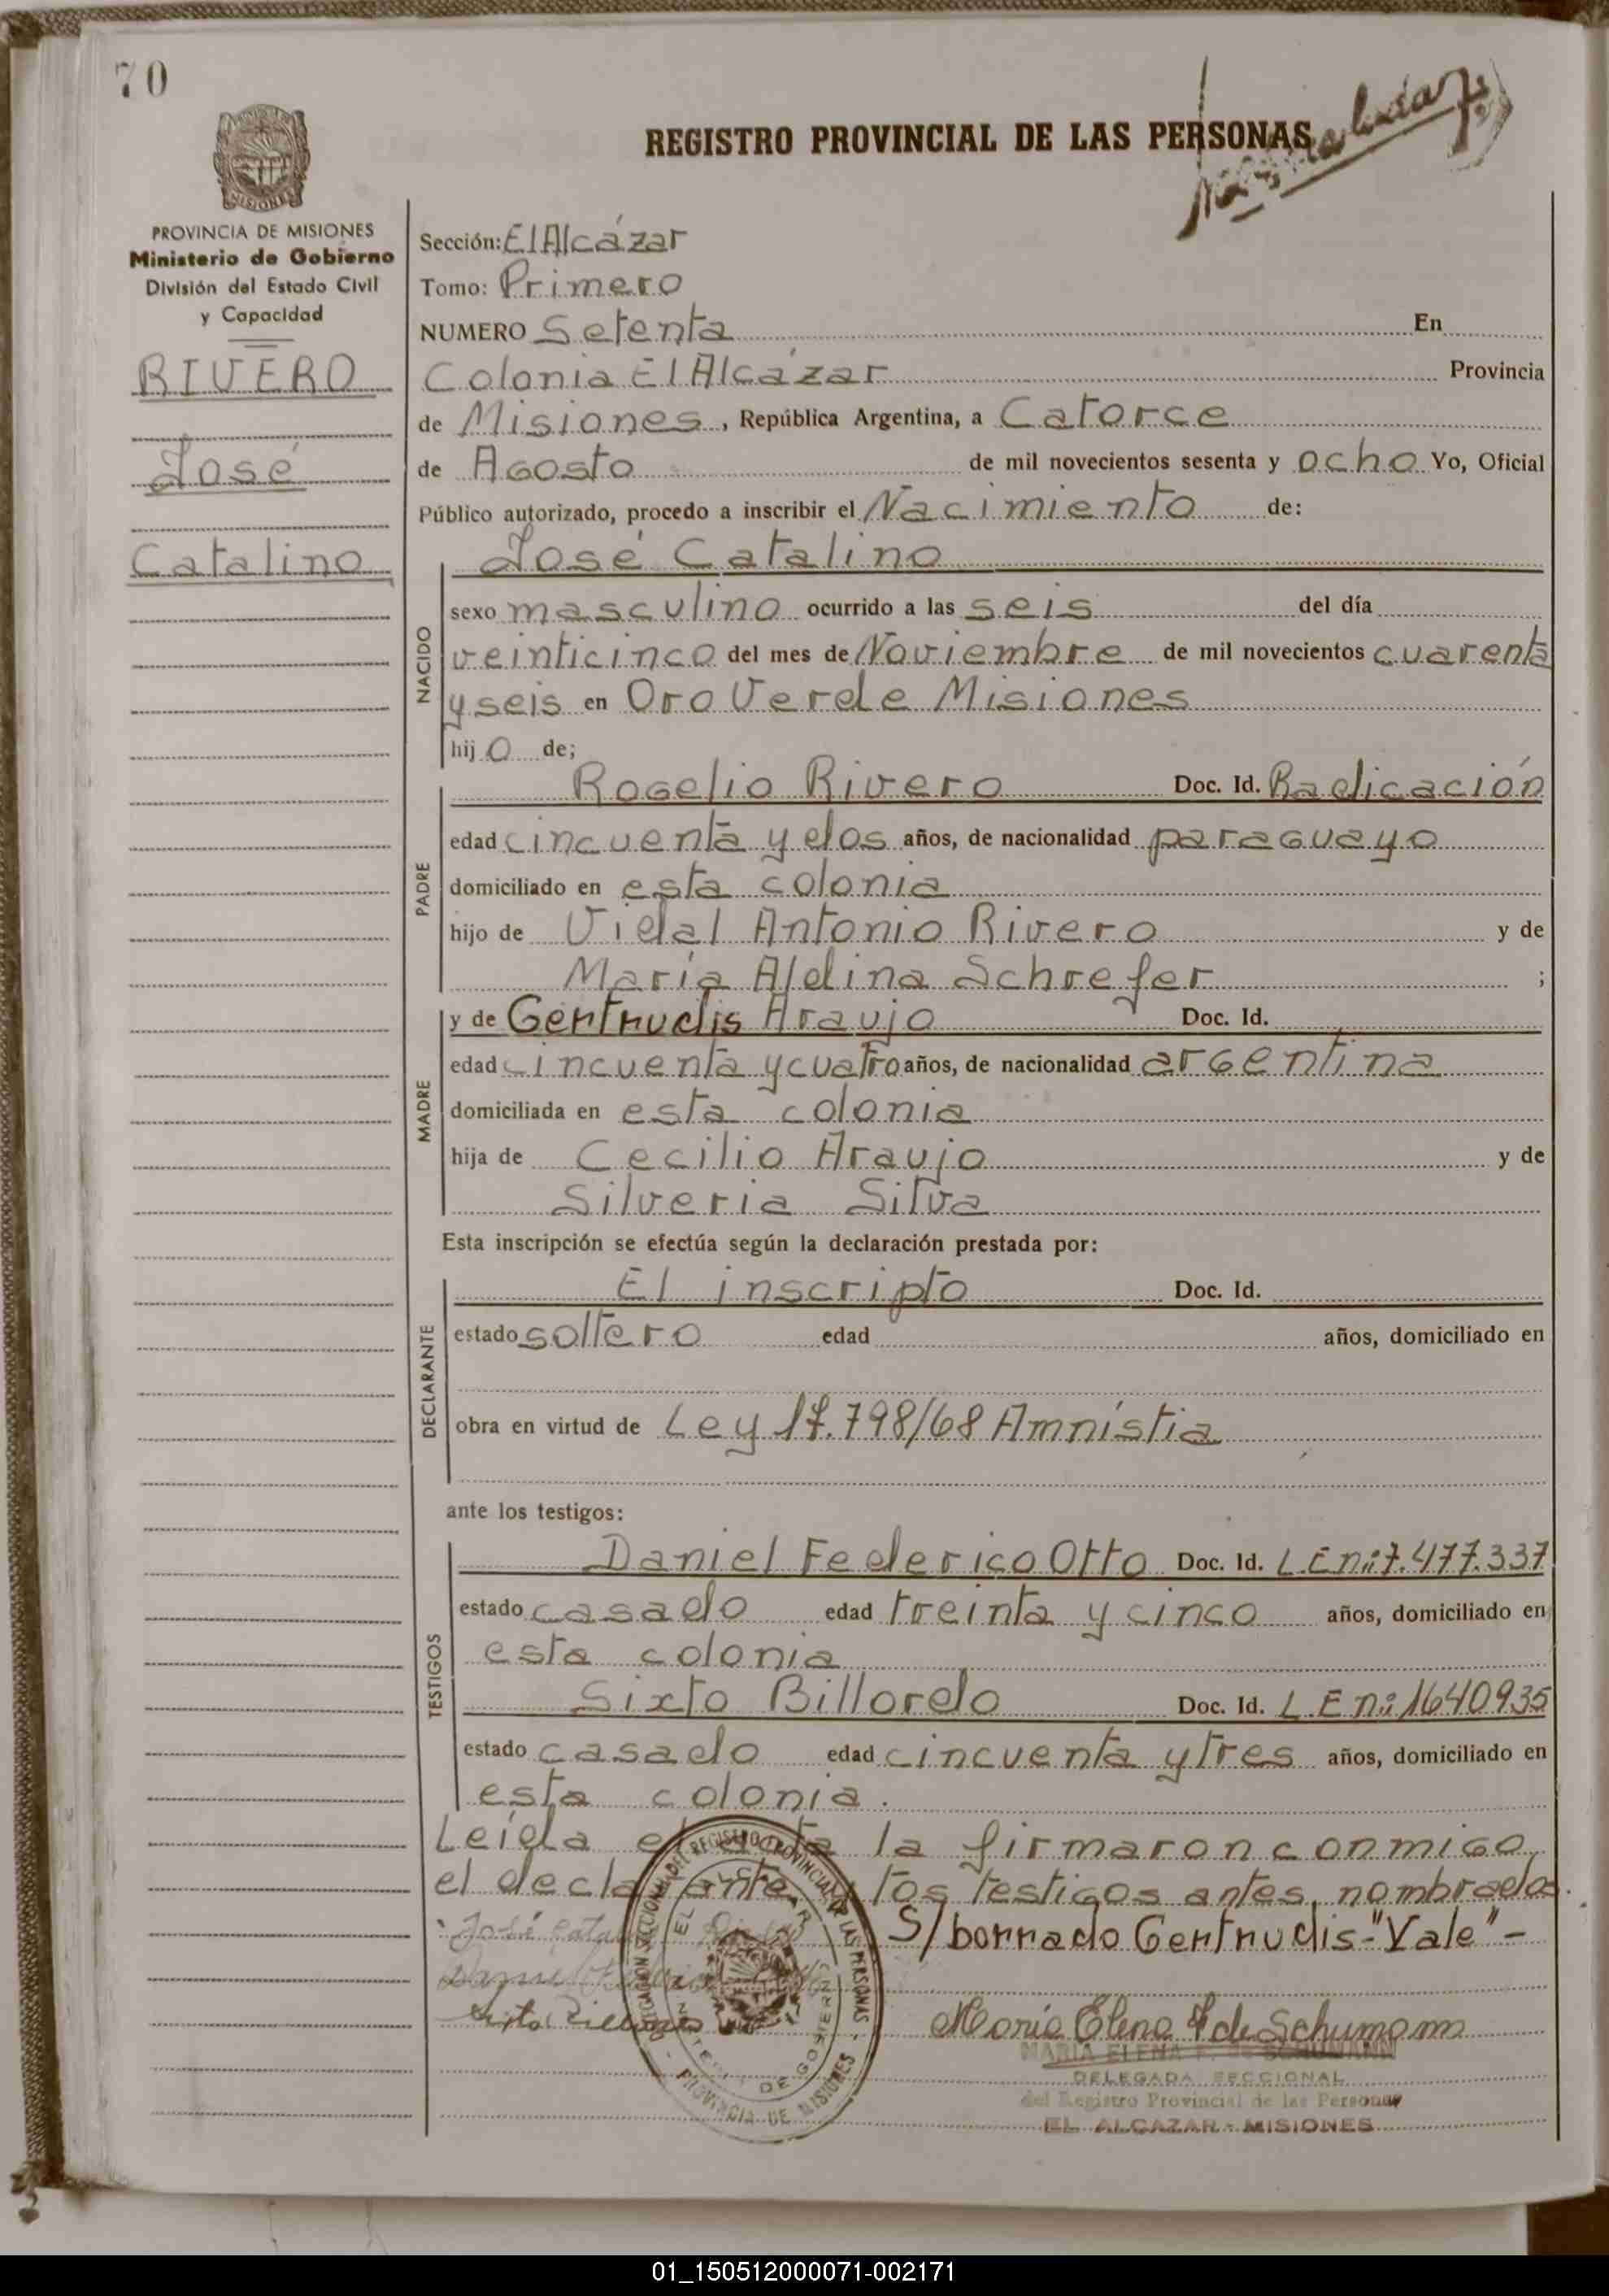 70
REGISTRO PROVINCIAL DE LAS PERSONAS
MISIONES
PROVINCIA DE MISIONES
Ministerio de Gobierno
División del Estado Civil
y Capacidad
RIVERO
José
Catalino
Sección: El Alcázar
Tomo: Primero
NUMERO Setenta En
Colonia El Alcázar Provincia
de Misiones, República Argentina, a Catorce
de Agosto de mil novecientos sesenta y ocho Yo, Oficial
Público autorizado, procedo a inscribir el Nacimiento de:
José Catalino
NACIDO
sexo masculino ocurrido a las seis del día
veinticinco del mes de Noviembre de mil novecientos cuarenta
y seis en Oro Verde Misiones
hijo de;
Rogelio Rivero Doc. Id. Radicación
PADRE
edad cincuenta y dos años, de nacionalidad paraguayo
domiciliado en esta colonia
hijo de Vidal Antonio Rivero y de
María Aldina Schrefer ;
y de Gertrudis Araujo Doc. Id.
MADRE
edad cincuenta y cuatro años, de nacionalidad argentina
domiciliada en esta colonia
hija de Cecilio Araujo y de
Silveria Silva
Esta inscripción se efectúa según la declaración prestada por:
El inscripto Doc. Id.
DECLARANTE
estado soltero edad años, domiciliado en
obra en virtud de Ley 17.798/68 Amnistia
ante los testigos:
Daniel Federico Otto Doc. Id. L.E nº: 7.477.337
TESTIGOS
estado casado edad treinta y cinco años, domiciliado en
esta colonia
Sixto Billordo Doc. Id. L.E nº: 1640935
estado casado edad cincuenta y tres años, domiciliado en
esta colonia.
Leída el acta la firmaron conmigo
el declarante y los testigos antes nombrados.
S/borrado Gertrudis-"Vale"-
José
María Elena F de Schumann
MARIA ELENA F. DE SCHUMANN
DELEGADA SECCIONAL
del Registro Provincial de las Personas
EL ALCAZAR - MISIONES
DELEGACION SECCIONAL DEL REGISTRO PROVINCIAL DE LAS PERSONAS
PROVINCIA DE MISIONES
EL ALCAZAR
MINISTERIO DE GOBIERNO
01_150512000071-002171